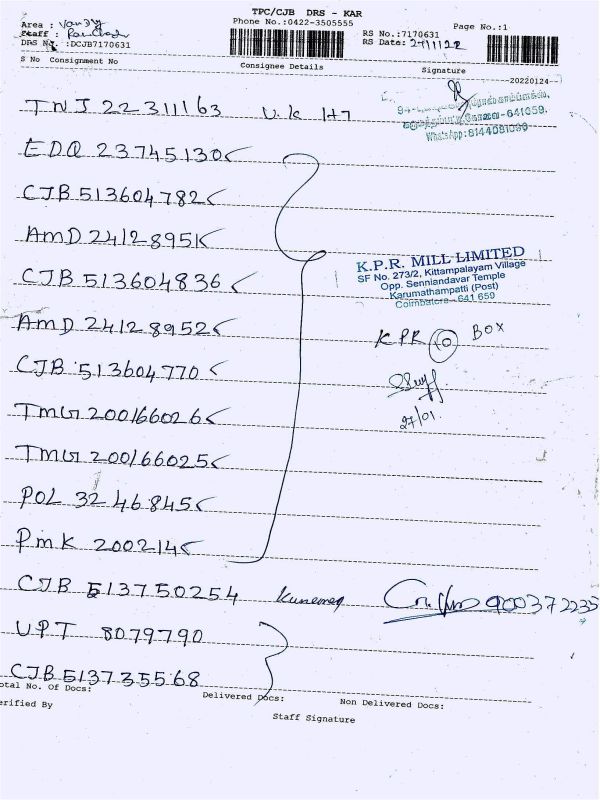 TPC/CJB DRS - KAR
Area :
Phone No.:0422-3505555
Page No.:1
Staff :
RS No.:7170631
DRS No. :DCJB7170631
RS Date: 27/1/22
S No Consignment No
Consignee Details
Signature
20220124
TNJ 22311163 U.K 147
641659.
WhatsApp: 8144081099
EDQ 23745130
CJB 513604782
AMD 24128951
K.P.R. MILL LIMITED
SF No. 273/2, Kittampalayam Village
Opp. Senniandavar Temple
Karumathampatti (Post)
Coimbatore - 641 659
CJB 513604836
AMD 24128952
KPR 10 BOX
CJB 513604770
27/01.
TMG 200166026
TMG 200166025
POL 3246845
PMK 200214
CJB 513750254 900372235
UPT 8079790
CJB 513735568
otal No. Of Docs:
Delivered Docs:
Non Delivered Docs:
erified By
Staff Signature